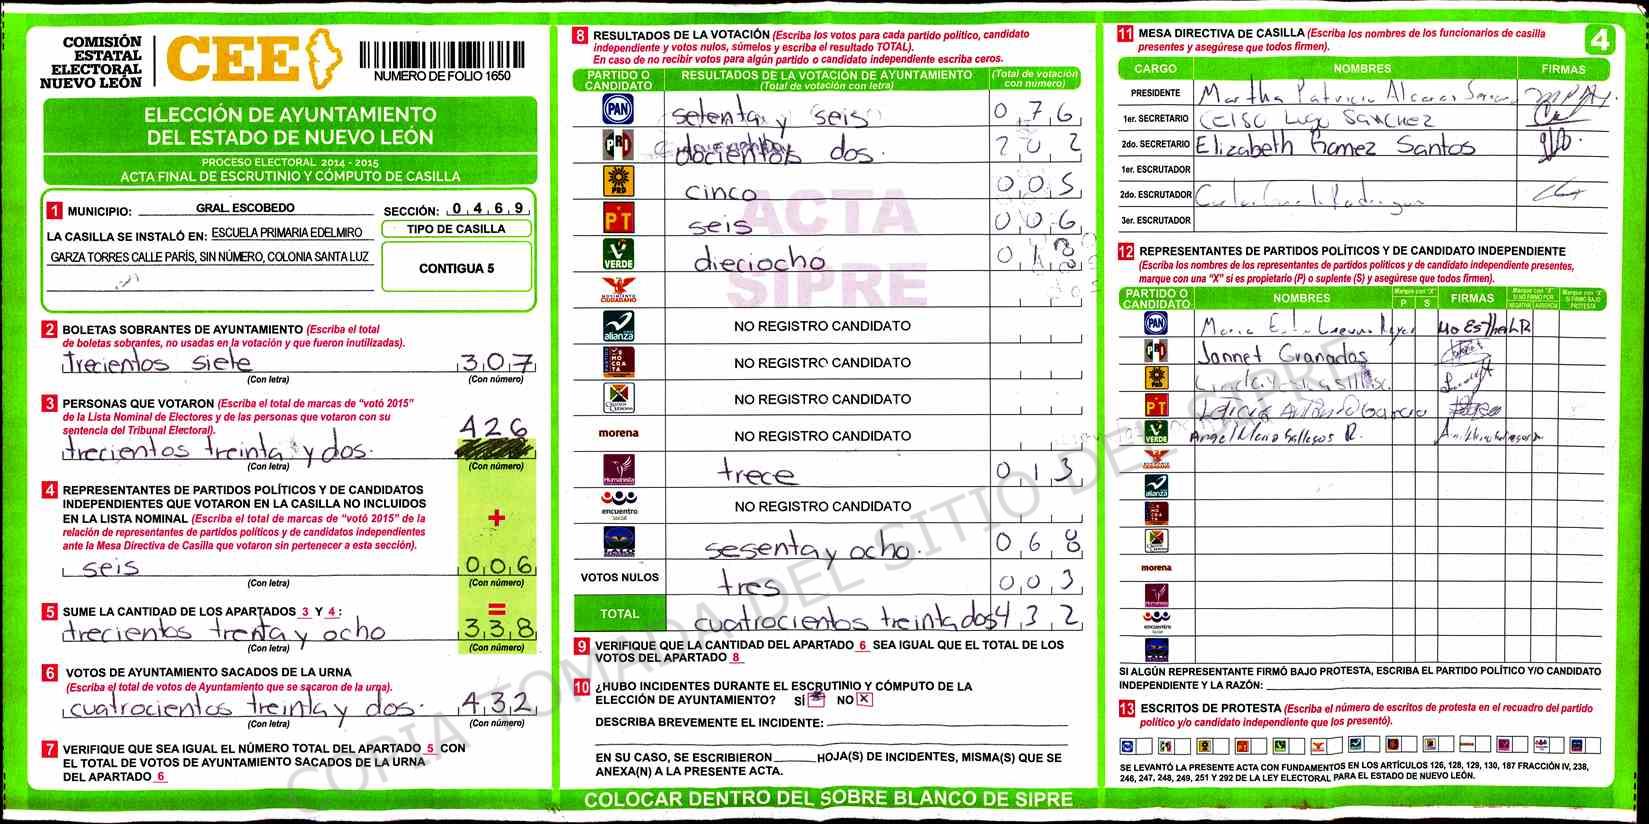 COMISIÓN
ESTATAL
ELECTORAL
NUEVO LEÓN
CEE
NUMERO DE FOLIO 1650
ELECCIÓN DE AYUNTAMIENTO
DEL ESTADO DE NUEVO LEÓN
PROCESO ELECTORAL 2014 - 2015
ACTA FINAL DE ESCRUTINIO Y CÓMPUTO DE CASILLA
1 MUNICIPIO: GRAL. ESCOBEDO SECCIÓN: 0 4 6 9
LA CASILLA SE INSTALÓ EN: ESCUELA PRIMARIA EDELMIRO
GARZA TORRES CALLE PARÍS, SIN NÚMERO, COLONIA SANTA LUZ
TIPO DE CASILLA
CONTIGUA 5
2 BOLETAS SOBRANTES DE AYUNTAMIENTO (Escriba el total
de boletas sobrantes, no usadas en la votación y que fueron inutilizadas).
trecientos siete 3 0 7
(Con letra) (Con número)
3 PERSONAS QUE VOTARON (Escriba el total de marcas de "votó 2015"
de la Lista Nominal de Electores y de las personas que votaron con su
sentencia del Tribunal Electoral).
426
trecientos treinta y dos.
(Con letra) (Con número)
4 REPRESENTANTES DE PARTIDOS POLÍTICOS Y DE CANDIDATOS
INDEPENDIENTES QUE VOTARON EN LA CASILLA NO INCLUIDOS
EN LA LISTA NOMINAL (Escriba el total de marcas de "votó 2015" de la
relación de representantes de partidos políticos y de candidatos independientes
ante la Mesa Directiva de Casilla que votaron sin pertenecer a esta sección).
+
seis 0 0 6
(Con letra) (Con número)
5 SUME LA CANTIDAD DE LOS APARTADOS 3 Y 4 : =
trecientos trenta y ocho 3 3 8
(Con letra) (Con número)
6 VOTOS DE AYUNTAMIENTO SACADOS DE LA URNA
(Escriba el total de votos de Ayuntamiento que se sacaron de la urna).
cuatrocientos treinta y dos. 4 3 2
(Con letra) (Con número)
7 VERIFIQUE QUE SEA IGUAL EL NÚMERO TOTAL DEL APARTADO 5 CON
EL TOTAL DE VOTOS DE AYUNTAMIENTO SACADOS DE LA URNA
DEL APARTADO 6
8 RESULTADOS DE LA VOTACIÓN (Escriba los votos para cada partido político, candidato
independiente y votos nulos, súmelos y escriba el resultado TOTAL).
En caso de no recibir votos para algún partido o candidato independiente escriba ceros.
PARTIDO O CANDIDATO RESULTADOS DE LA VOTACIÓN DE AYUNTAMIENTO (Total de votación con letra) (Total de votación con número)
PAN setenta y seis 0 7 6
PRI docientos dos. 2 0 2
PRD cinco 0 0 5
PT seis 0 0 6
VERDE dieciocho 0 1 8
MOVIMIENTO CIUDADANO
alianza NO REGISTRO CANDIDATO
DEMOCRATA NO REGISTRO CANDIDATO
NO REGISTRO CANDIDATO
morena NO REGISTRO CANDIDATO
Humanista trece 0 1 3
encuentro social NO REGISTRO CANDIDATO
sesenta y ocho. 0 6 8
VOTOS NULOS tres 0 0 3
TOTAL cuatrocientos treinta dos 4 3 2
ACTA
SIPRE
9 VERIFIQUE QUE LA CANTIDAD DEL APARTADO 6 SEA IGUAL QUE EL TOTAL DE LOS
VOTOS DEL APARTADO 8
10 ¿HUBO INCIDENTES DURANTE EL ESCRUTINIO Y CÓMPUTO DE LA
ELECCIÓN DE AYUNTAMIENTO? SÍ NO X
DESCRIBA BREVEMENTE EL INCIDENTE:
EN SU CASO, SE ESCRIBIERON HOJA(S) DE INCIDENTES, MISMA(S) QUE SE
ANEXA(N) A LA PRESENTE ACTA.
COLOCAR DENTRO DEL SOBRE BLANCO DE SIPRE
11 MESA DIRECTIVA DE CASILLA (Escriba los nombres de los funcionarios de casilla
presentes y asegúrese que todos firmen).
4
CARGO NOMBRES FIRMAS
PRESIDENTE Martha Patricia
1er. SECRETARIO Celso Lugo Sánchez
2do. SECRETARIO Elizabeth Gamez Santos
1er. ESCRUTADOR
2do. ESCRUTADOR
3er. ESCRUTADOR
12 REPRESENTANTES DE PARTIDOS POLÍTICOS Y DE CANDIDATO INDEPENDIENTE
(Escriba los nombres de los representantes de partidos políticos y de candidato independiente presentes,
marque con una "X" si es propietario (P) o suplente (S) y asegúrese que todos firmen).
PARTIDO O CANDIDATO NOMBRES Marque con "X" P S FIRMAS Marque con "X" SI NO FIRMÓ POR: NEGATIVA AUSENCIA Marque con "X" SI FIRMÓ BAJO PROTESTA
PAN Maria
PRI Jannet Granados
PRD
PT Leticia Antonio Garcia
VERDE Angel Mario Gallegos R.
alianza
morena
encuentro
SI ALGÚN REPRESENTANTE FIRMÓ BAJO PROTESTA, ESCRIBA EL PARTIDO POLÍTICO Y/O CANDIDATO
INDEPENDIENTE Y LA RAZÓN:
13 ESCRITOS DE PROTESTA (Escriba el número de escritos de protesta en el recuadro del partido
político y/o candidato independiente que los presentó).
SE LEVANTÓ LA PRESENTE ACTA CON FUNDAMENTOS EN LOS ARTÍCULOS 126, 128, 129, 130, 187 FRACCIÓN IV, 238,
246, 247, 248, 249, 251 Y 292 DE LA LEY ELECTORAL PARA EL ESTADO DE NUEVO LEÓN.
COPIA TOMADA DEL SITIO DEL SIPRE